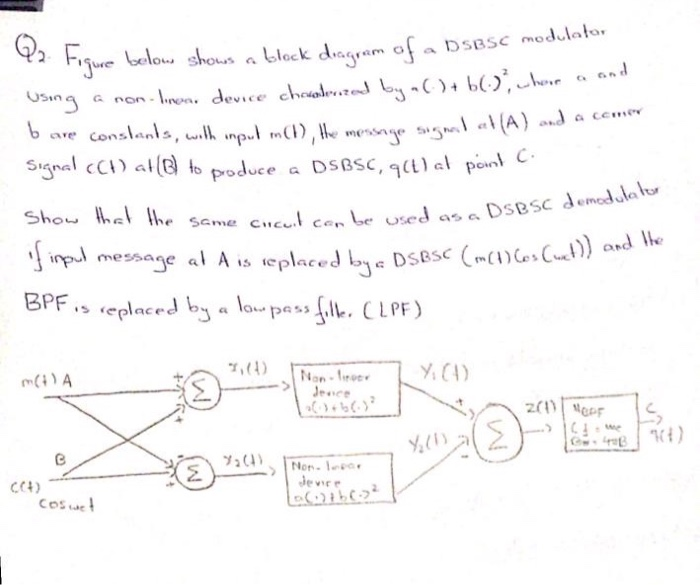 Q2. Figure below shows a block diagram of a DSBSC modulator
using a non-linear device characterized by a(.)+ b(.)², where a and
b are constants, with input m(t), the message signal at (A) and a carrier
signal c(t) at (B) to produce a DSBSC, q(t) at point C.
Show that the same circuit can be used as a DSBSC demodulator
if input message at A is replaced by a DSBSC (m(t) Cos(wct)) and the
BPF is replaced by a low pass filte. (LPF)
m(t) A
+
Σ
+
x1(t)
Non-linear
device
a(.)+b(.)²
y1(t)
+
Σ
-
z(t)
C
q(t)
B
c(t)
cos wct
-
Σ
+
x2(t)
Non-linear
device
a(.)+b(.)²
y2(t)